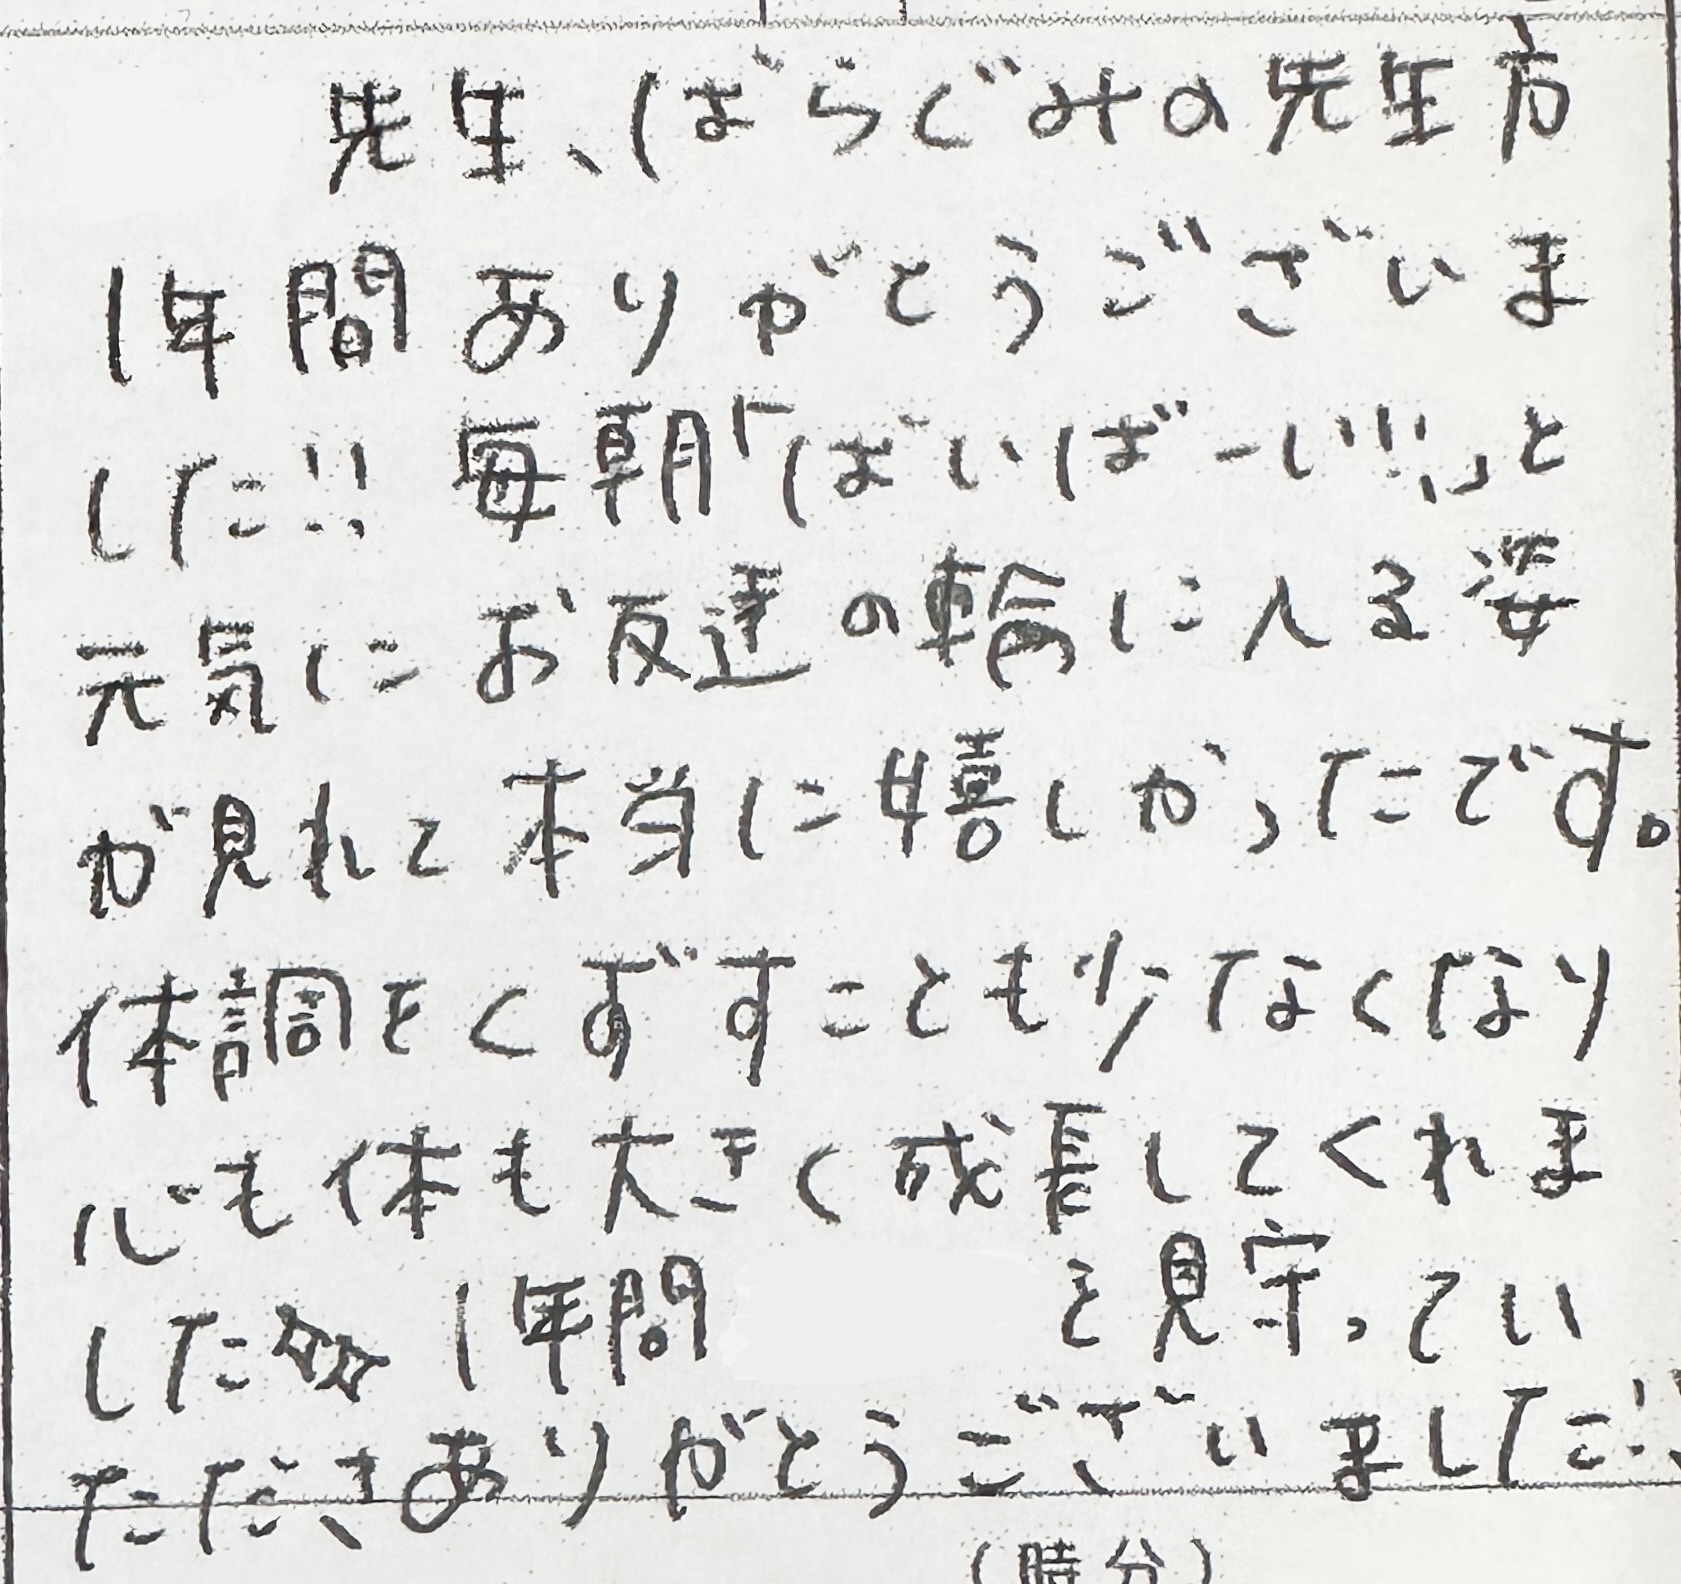 先生、ばらぐみの先生方
1年間ありがとうございま
した!! 毎朝「ばいばーい!!」と
元気にお友達の輪に入る姿
が見れて本当に嬉しかったです。
体調をくずすことも少なくなり
心も体も大きく成長してくれま
した☆☆ 1年間 を見守ってい
ただきありがとうございました!!
(時分)